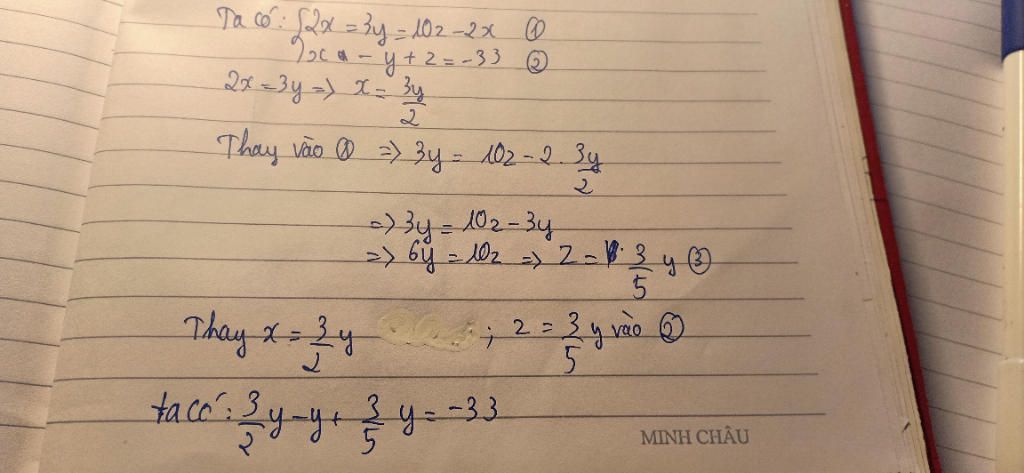 Ta có: { 2x = 3y = 10z - 2x ①
x - y + z = -33 ②
2x = 3y => x = 3y/2
Thay vào ① => 3y = 10z - 2 . 3y/2
=> 3y = 10z - 3y
=> 6y = 10z => z = 3/5 y ③
Thay x = 3/2 y ; z = 3/5 y vào ②
ta có: 3/2 y - y + 3/5 y = -33
MINH CHÂU